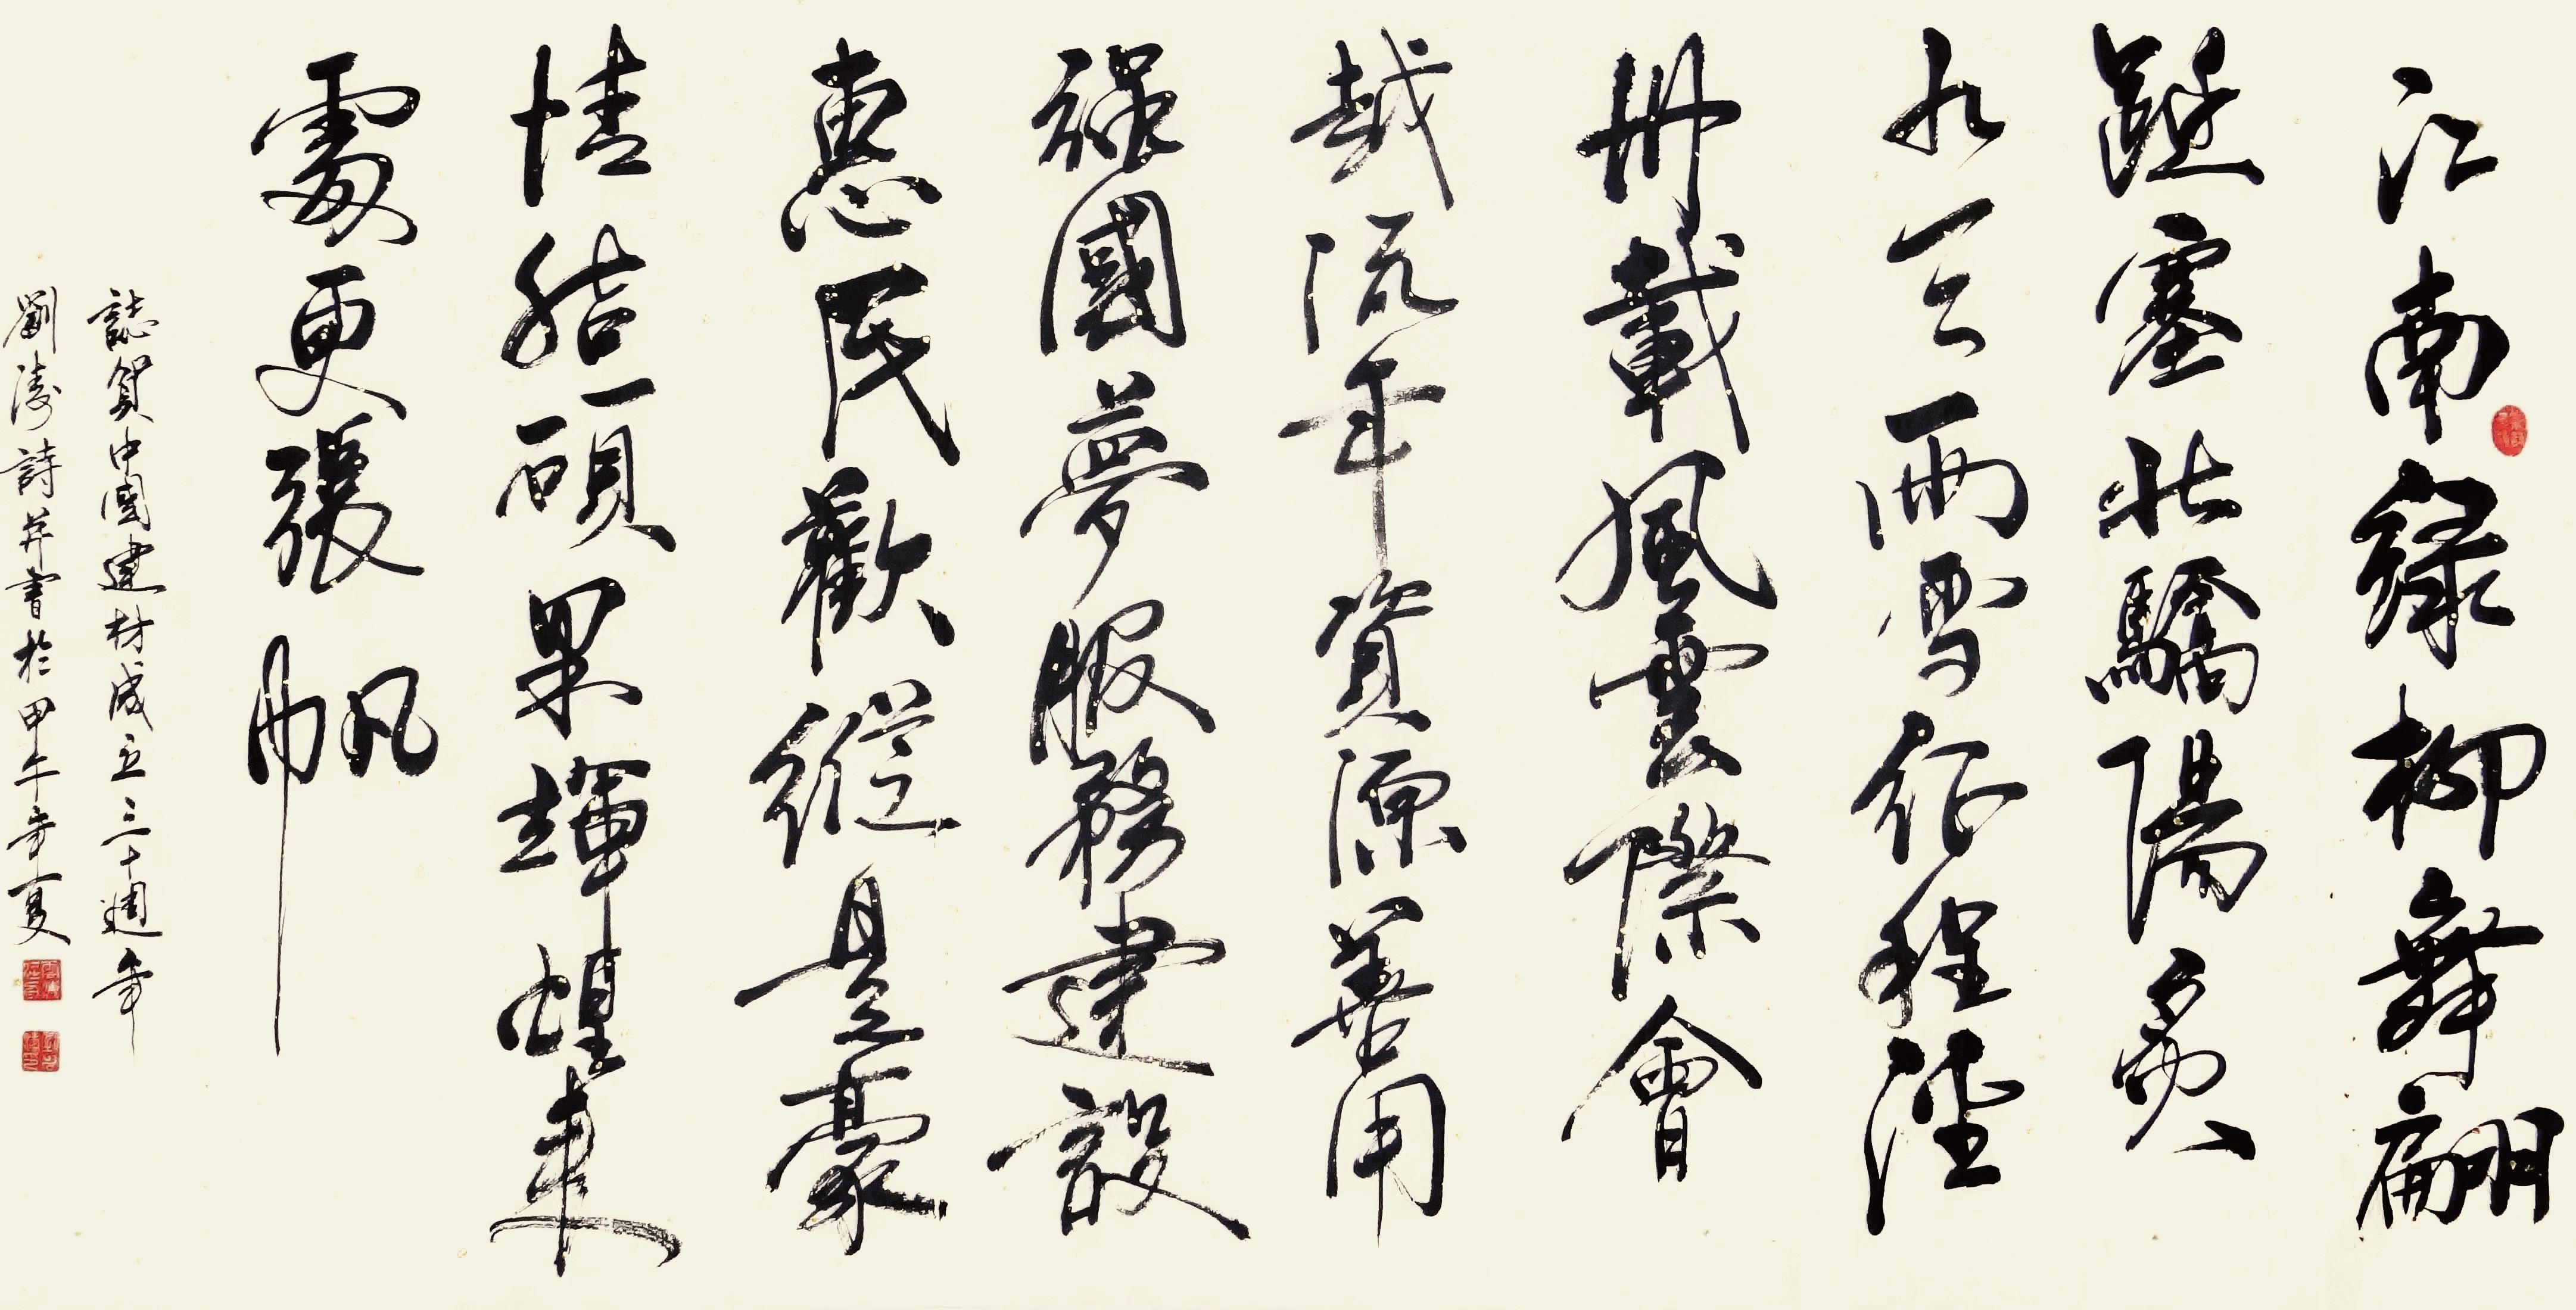 江南綠柳舞翩
躚塞北驕陽炙
九天雨雪征程經
卅載風雲際會
越流年資源善用
強國夢服務建設
惠民歡縱是豪
情結碩果輝煌來
處更張帆
誌賀中國建材成立三十週年
劉濤詩并書於甲午年夏